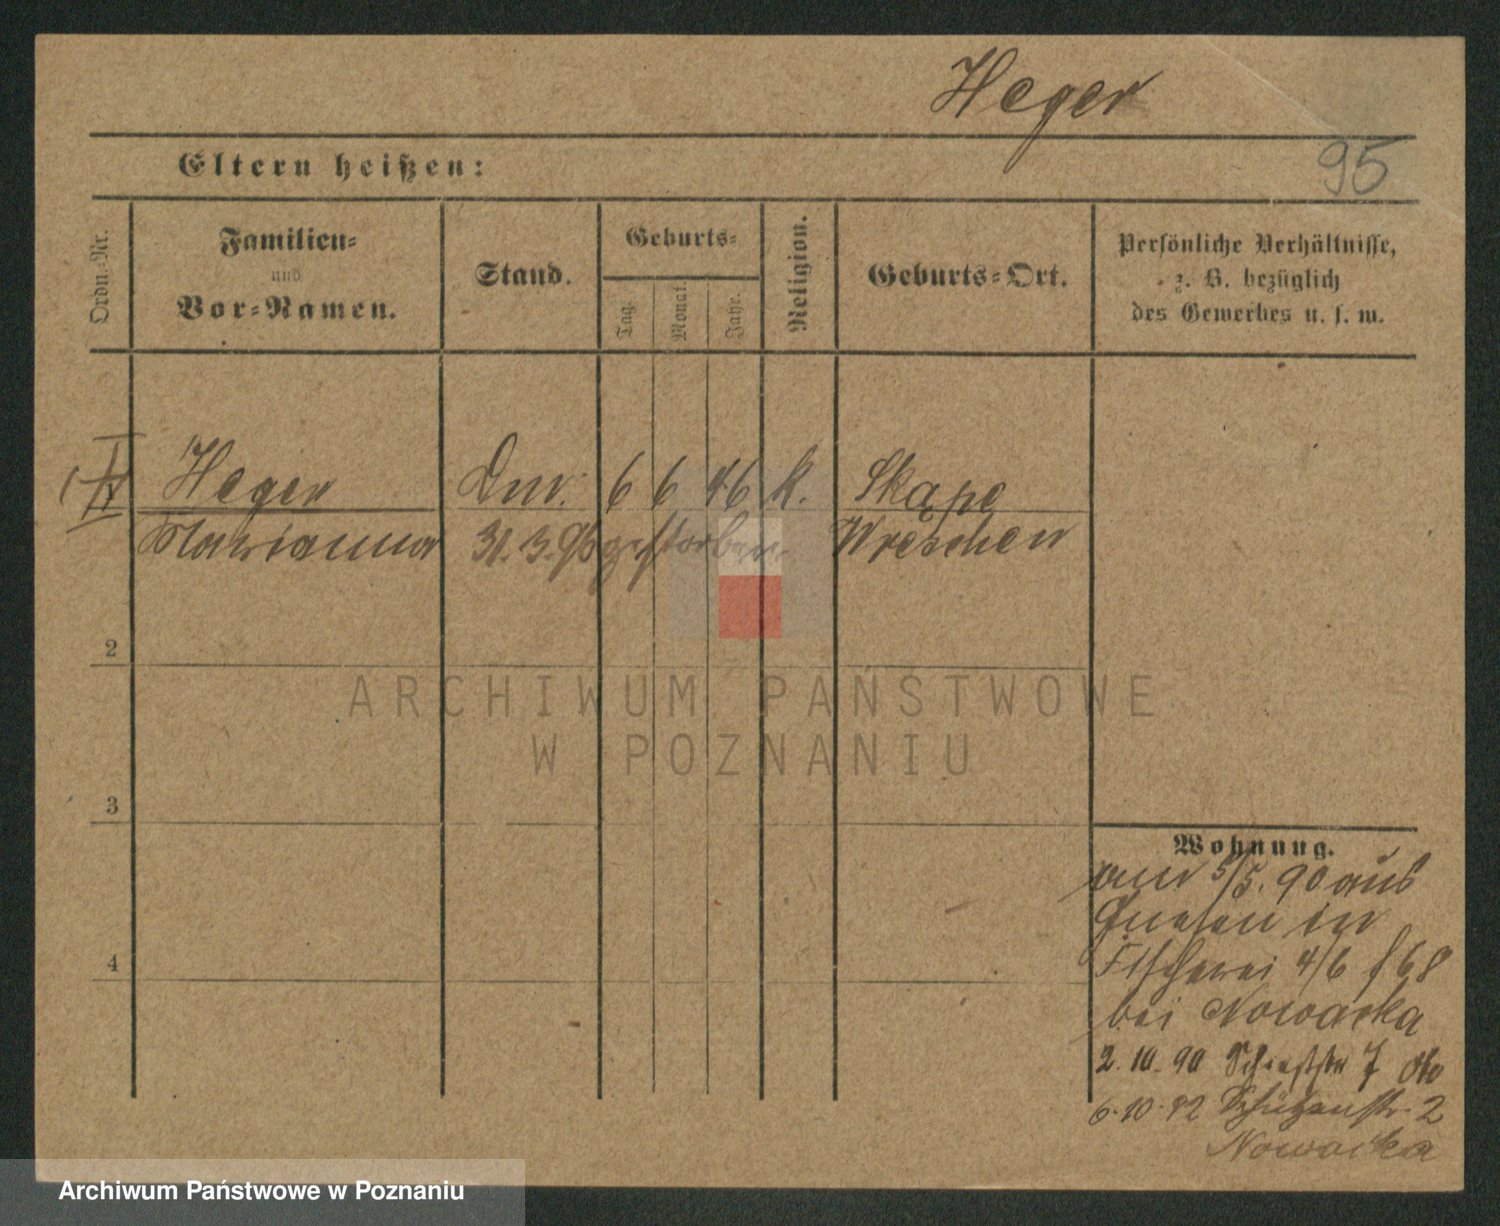 Heger
95
Eltern heißen:
Ordn.-Nr.
Familien-
und
Vor-Namen.
Stand.
Geburts-
Tag.
Monat.
Jahr.
Religion.
Geburts-Ort.
Persönliche Verhältnisse,
z. B. bezüglich
des Gewerbes u. s. w.
Heger 6 6 46 k. Skąpe
Marianna 31.3.95 gestorben Wreschen
2
3
4
ARCHIWUM PAŃSTWOWE
W POZNANIU
Wohnung.
am 5/5. 90 aus
Gnesen in
Fischerei 4/6
bei Nowacka
2. 10. 90 7
6. 10. 92 Schützenstr. 2
Nowacka
Archiwum Państwowe w Poznaniu